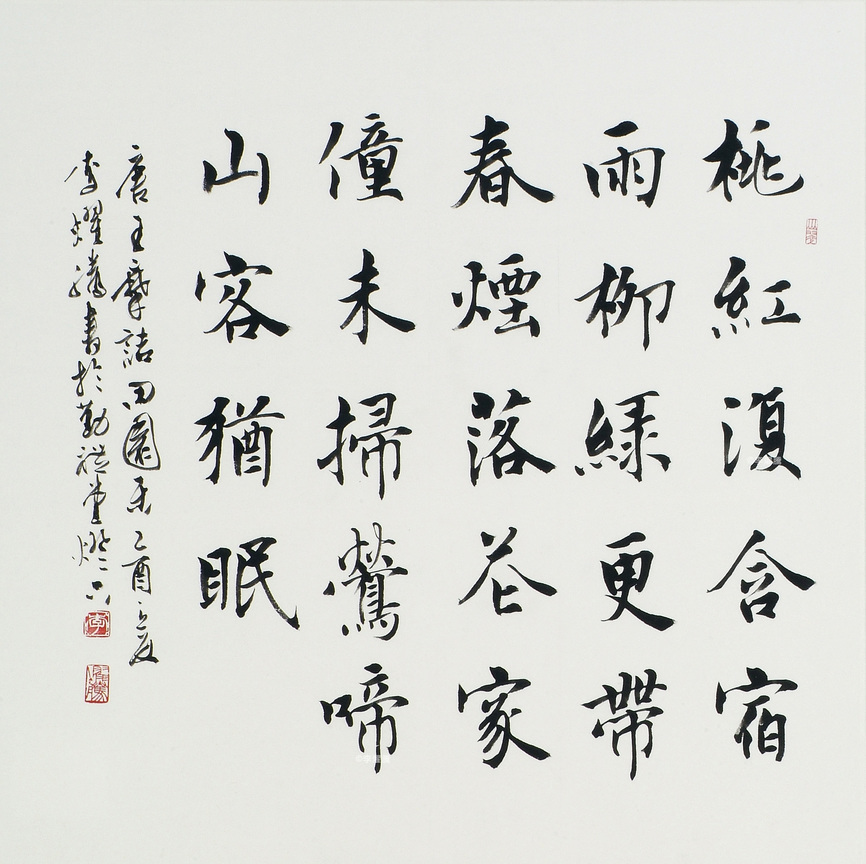 桃紅復含宿
雨柳綠更帶
春煙落花家
僮未掃鶯啼
山客猶眠
唐王摩詰田園樂乙酉之夏
李耀騰書於勤禮堂燈下